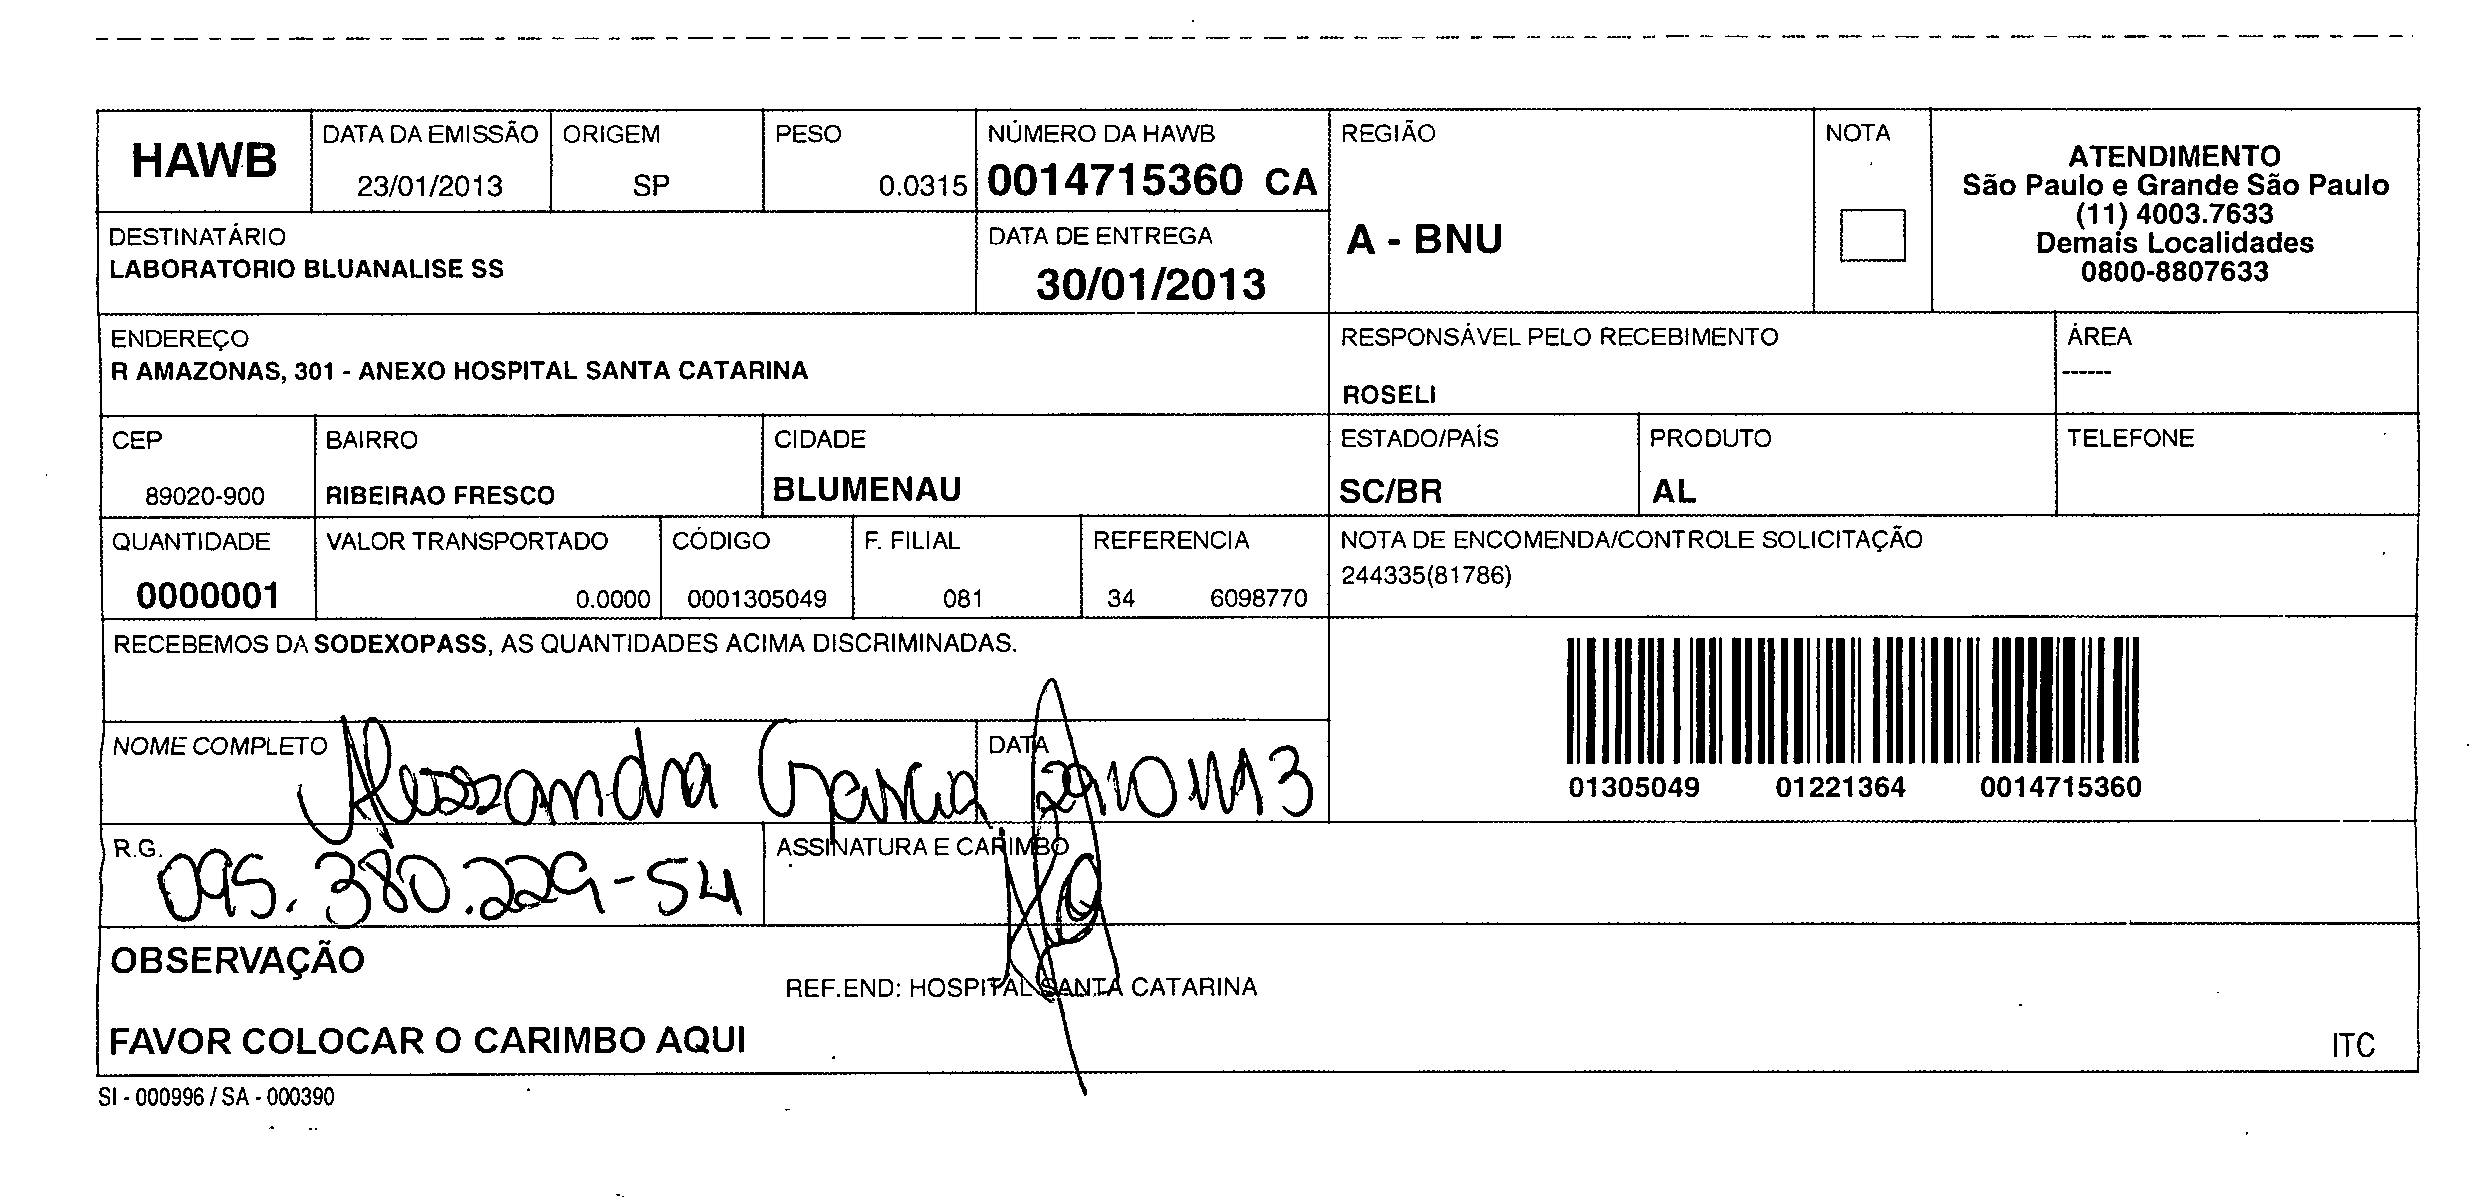 HAWB
DATA DA EMISSÃO
23/01/2013
ORIGEM
SP
PESO
0.0315
NÚMERO DA HAWB
0014715360 CA
REGIÃO
A - BNU
NOTA
ATENDIMENTO
São Paulo e Grande São Paulo
(11) 4003.7633
Demais Localidades
0800-8807633
DESTINATÁRIO
LABORATORIO BLUANALISE SS
DATA DE ENTREGA
30/01/2013
ENDEREÇO
R AMAZONAS, 301 - ANEXO HOSPITAL SANTA CATARINA
RESPONSÁVEL PELO RECEBIMENTO
ROSELI
ÁREA
------
CEP
89020-900
BAIRRO
RIBEIRAO FRESCO
CIDADE
BLUMENAU
ESTADO/PAÍS
SC/BR
PRODUTO
AL
TELEFONE
QUANTIDADE
0000001
VALOR TRANSPORTADO
0.0000
CÓDIGO
0001305049
F. FILIAL
081
REFERENCIA
34 6098770
NOTA DE ENCOMENDA/CONTROLE SOLICITAÇÃO
244335(81786)
RECEBEMOS DA SODEXOPASS, AS QUANTIDADES ACIMA DISCRIMINADAS.
01305049 01221364 0014715360
NOME COMPLETO
Alessandra Garcia
DATA
R.G.
095.380.229-54
ASSINATURA E CARIMBO
OBSERVAÇÃO
REF.END: HOSPITAL SANTA CATARINA
FAVOR COLOCAR O CARIMBO AQUI
ITC
SI - 000996 / SA - 000390